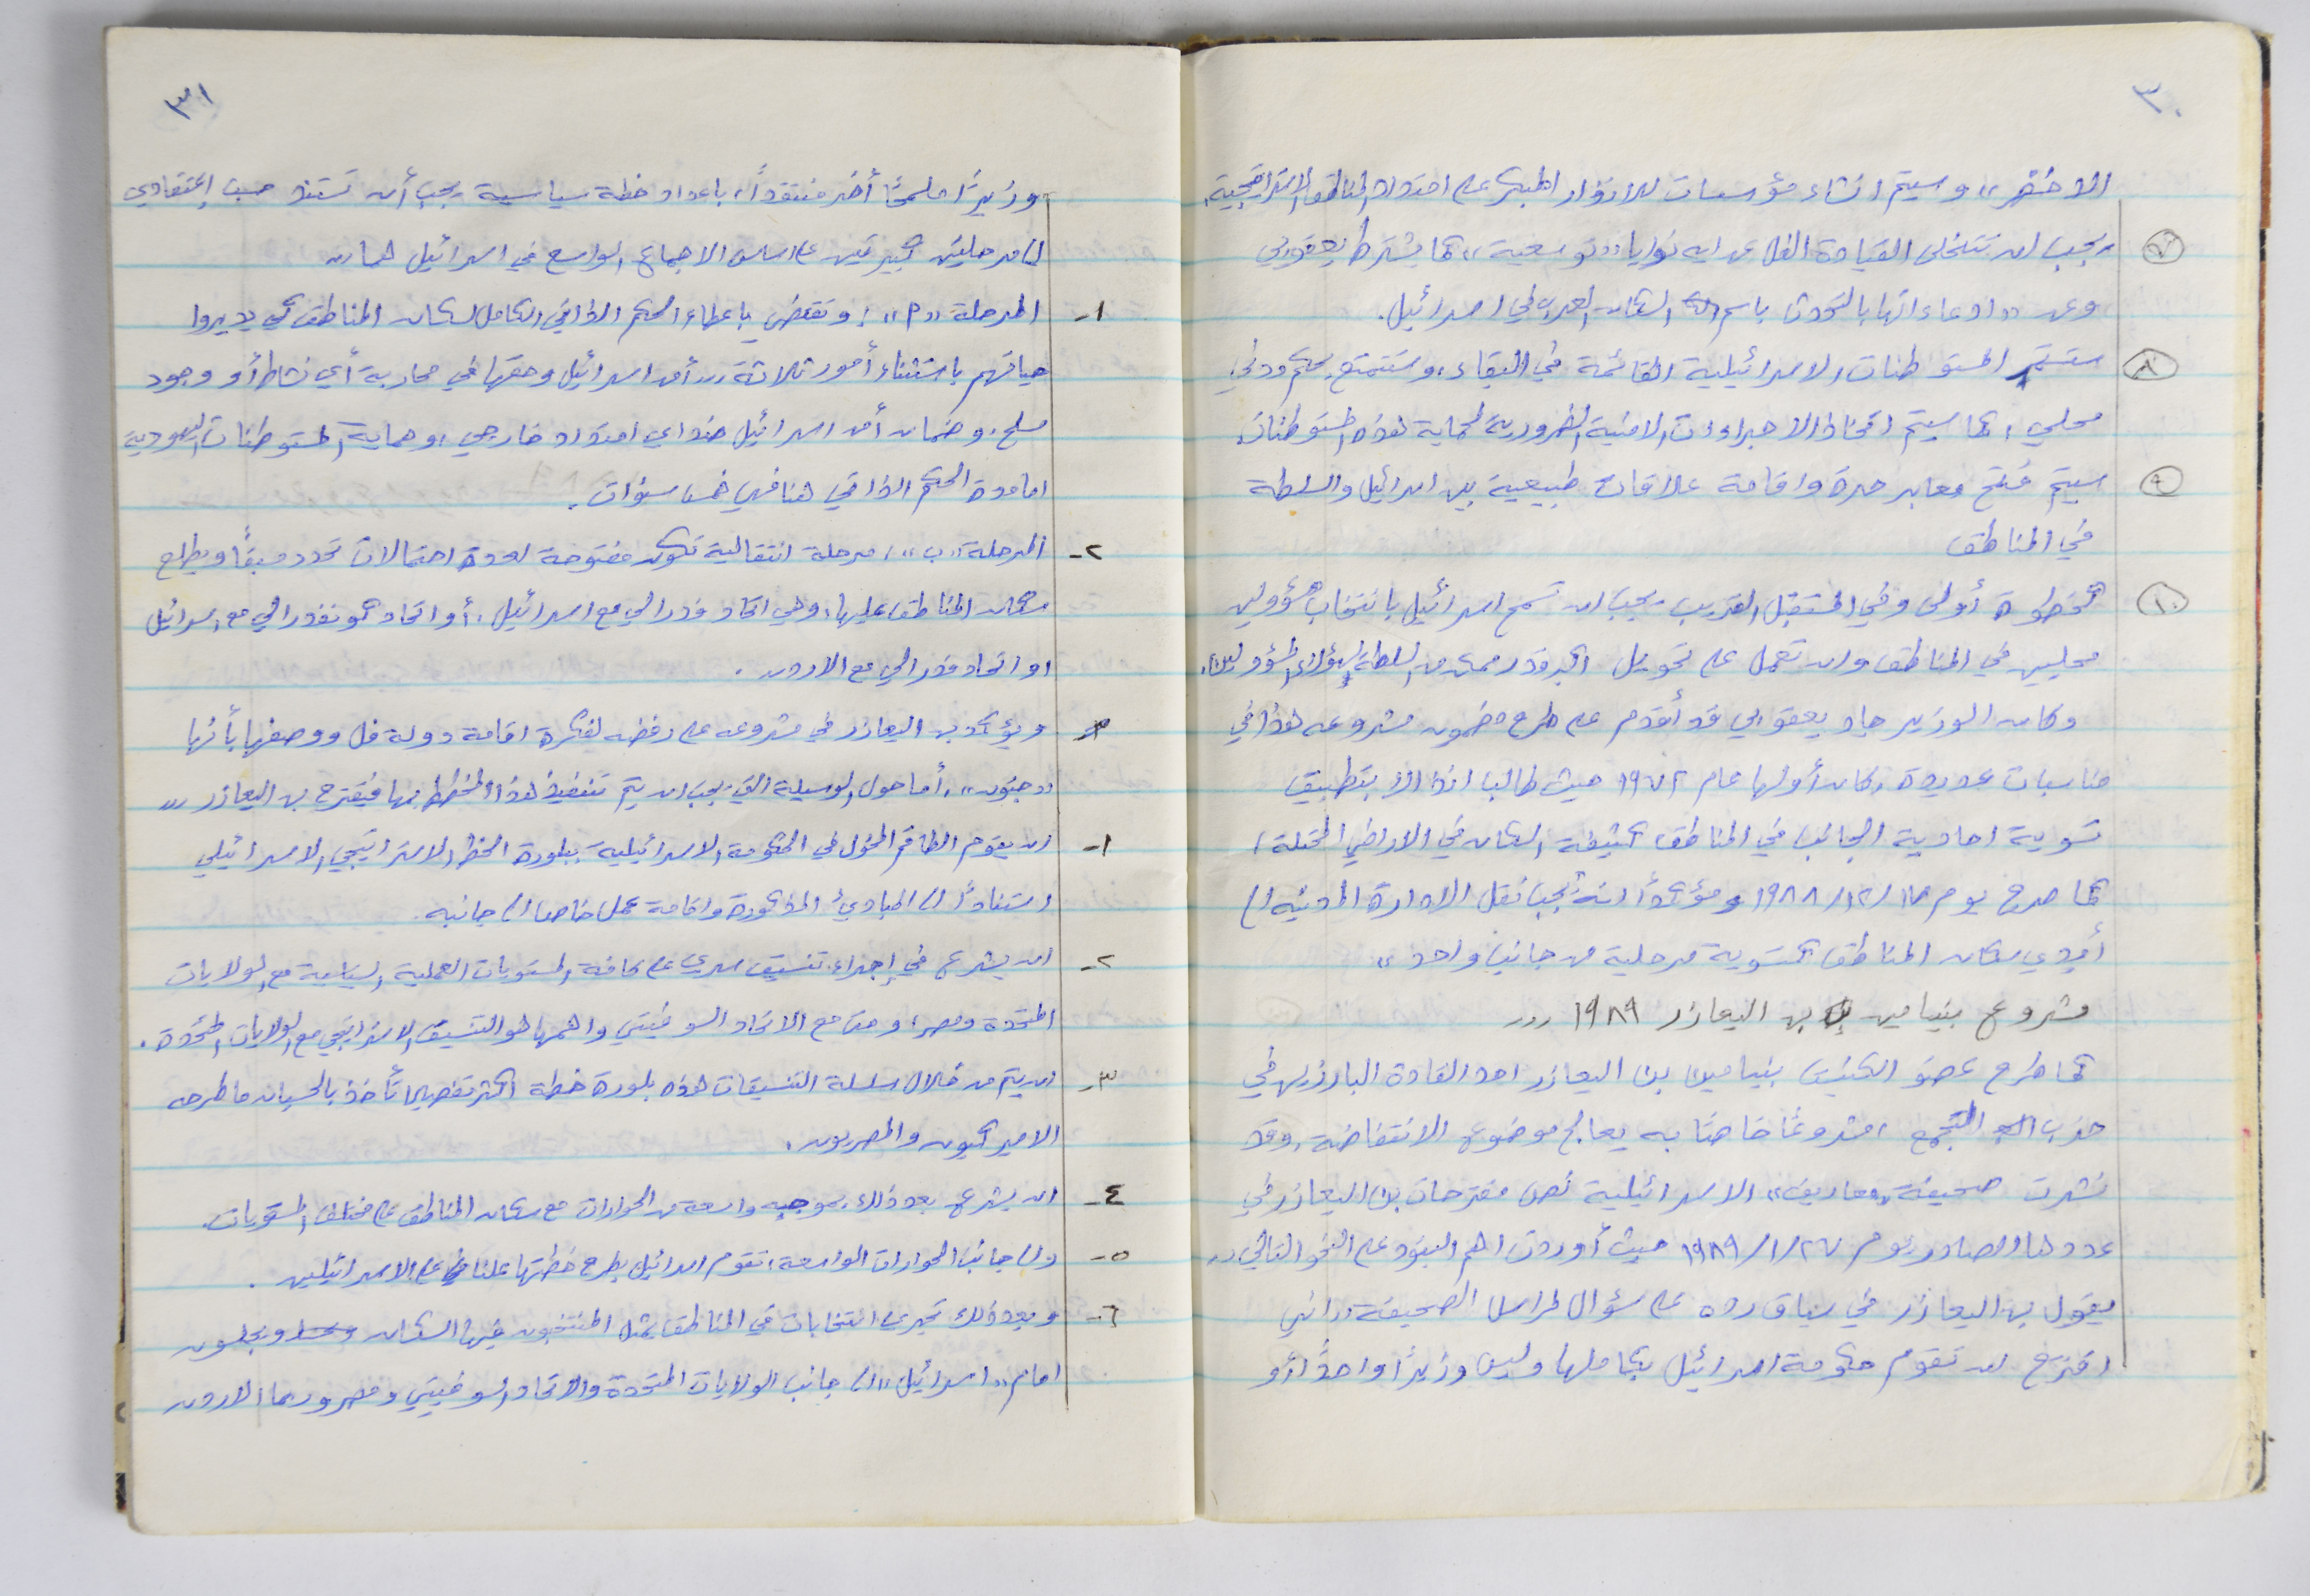 ٣٠
الأخضر» وسيتم انشاء مؤسسات للانذار المبكر على امتداد المناطق الاستراتيجية.
٧ يجب ان تتخلى القيادة الفلـ عن اية نوايا «توسعية» كما يشترط يعقوبي
وعن «ادعاءاتها بالتحدث باسم السكان العرب في اسرائيل.
٨ ستستمر المستوطنات الاسرائيلية القائمة في البقاء، وستتمتع بحكم ذاتي
محلي، كما سيتم اتخاذ الاجراءات الامنية الضرورية لحماية هذه المستوطنات.
٩ سيتم فتح معابر حرة واقامة علاقات طبيعية بين اسرائيل والسلطة
في المناطق
١٠ كخطوة أولى وفي المستقبل القريب يجب ان تسمح اسرائيل بانتخاب مسؤولين
محليين في المناطق وان تعمل على تحويل اكبر قدر ممكن من السلطة لهؤلاء المسؤولين.
وكان الوزير جاد يعقوبي قد أقدم على طرح مضمون مشروعه هذا في
مناسبات عديدة، كان أولها عام ١٩٧٢ حيث طالب انذاك بتطبيق
تسوية احادية الجانب في المناطق كثيفة السكان في الاراضي المحتلة،
كما صرح يوم ١٧/١٢/١٩٨٨ مؤكداً انه يجب نقل الادارة المدنية إلى
أيدي سكان المناطق كتسوية مرحلية من جانب واحد»
مشروع بنيامين بن اليعازر ١٩٨٩ ...
كما طرح عضو الكنيست بنيامين بن اليعازر احد القادة البارزين في
حزب التجمع، مشروعًا خاصًا به يعالج موضوع الانتفاضة، وقد
نشرت صحيفة «معاريف» الاسرائيلية نص مقترحات بن اليعازر في
عددها الصادر يوم ٢٧/١/١٩٨٩ حيث أوردت اهم البنود على النحو التالي ..
يقول بن اليعازر في سياق رده على سؤال لمراسل الصحيفة: انني
اقترح ان تقوم حكومة اسرائيل بكاملها وليس وزيرًا واحدًا أو
٣١
وزيرًا ملمحًا أخر منتقدًا، باعداد خطة سياسية يجب أن تستند حسب إعتقادي
إلى مرحلتين كبيرتين على اساس الاجماع الواسع في اسرائيل هما ..
١- المرحلة «أ»: وتقضي باعطاء الحكم الذاتي الكامل لسكان المناطق كي يديروا
حياتهم باستثناء أمور ثلاثة .. أمن اسرائيل وحقها في محاربة أي نشاط أو وجود
مسلح، وضمان أمن اسرائيل ضد اي امتداد خارجي، وحماية المستوطنات اليهودية
اما مدة الحكم الذاتي هنا فهي خمس سنوات.
٢- المرحلة «ب»، مرحلة انتقالية تكون مفتوحة لعدة احتمالات تحدد مسبقًا ويطلع
سكان المناطق عليها، وهي اتحاد فدرالي مع اسرائيل، أو اتحاد كونفدرالي مع اسرائيل
او اتحاد فدرالي مع الاردن.
ويؤكد بن اليعازر في مشروعه على رفضه لفكرة اقامة دولة فلـ ووصفها بأنها
«جنون»، أما حول الوسيلة التي يجب ان يتم تنفيذ هذا المخطط بها فيقترح بن اليعازر ...
١- ان يقوم الطاقم المخول في الحكومة الاسرائيلية ببلورة الخط الاستراتيجي الاسرائيلي
استنادًا إلى المبادئ المذكورة واقامة عمل خاص إلى جانبه.
٢- ان يشرع في إجراء تنسيق سري على كافة المستويات العملية السياسية مع الولايات
المتحدة ومصر، وحتى مع الاتحاد السوفيتي واهمها هو التنسيق الاستراتيجي مع الولايات المتحدة.
٣- ان يتم من خلال سلسلة التنسيقات هذه بلورة خطة اكثر تفصيلا تأخذ بالحسبان ما طرحه
الاميركيون والمصريون.
٤- ان يشرع بعد ذلك بموجبه واسعة من الحوارات مع سكان المناطق على مختلف المستويات.
٥- وإلى جانب الحوارات الواسعة، تقوم اسرائيل بطرح خطتها علنا على الاسرائيليين.
٦- وبعد ذلك تجرى انتخابات في المناطق يمثل المنتخبون فيها السكان ويجلسون
امام «اسرائيل» إلى جانب الولايات المتحدة والاتحاد السوفيتي ومصر وربما الاردن